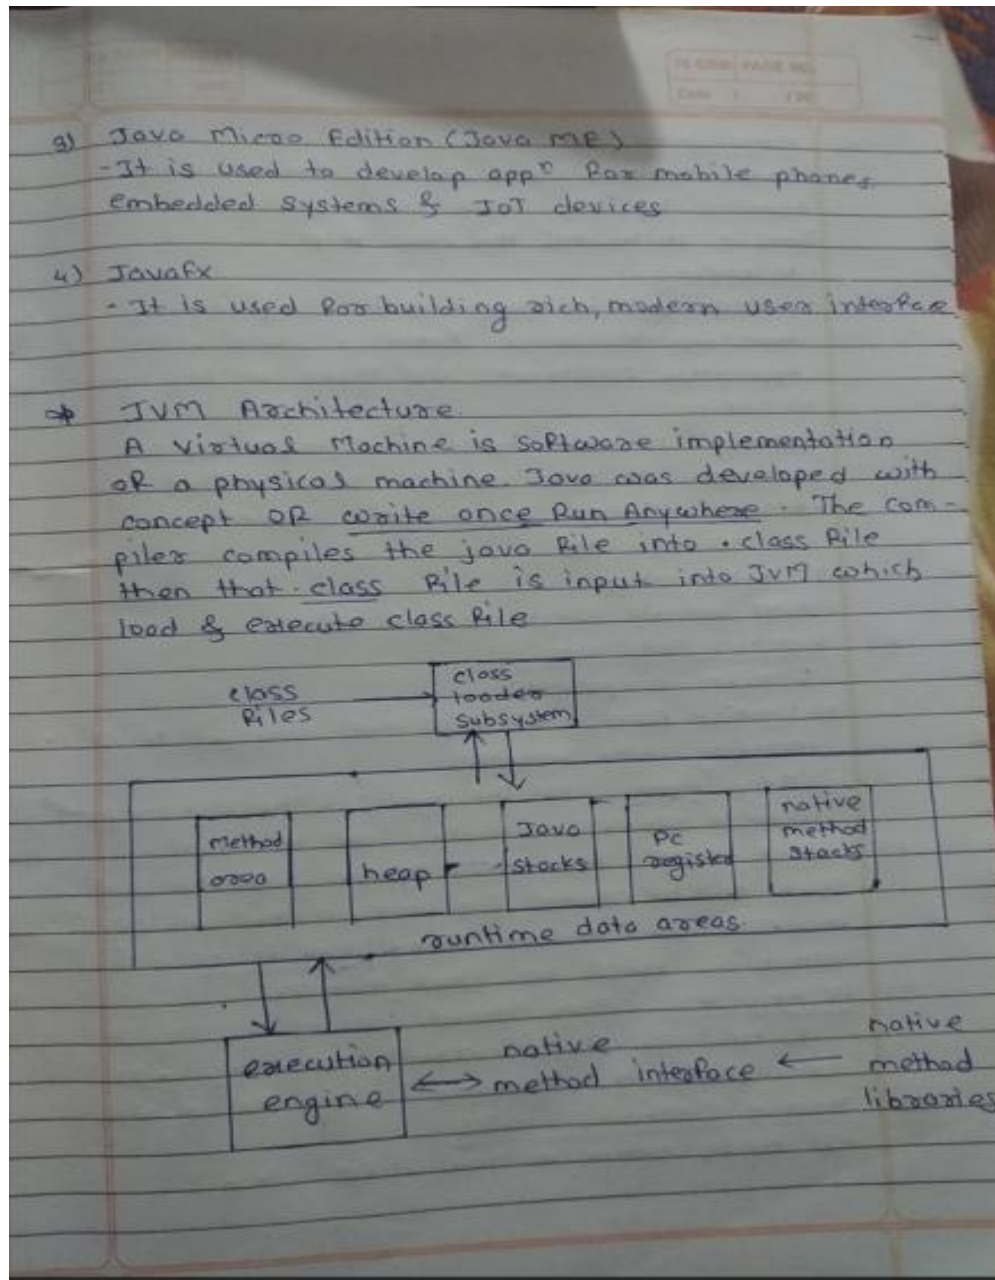 3) Java Micro Edition (Java ME)
- It is used to develop appⁿ for mobile phones,
embedded systems & IoT devices
4) Javafx
- It is used for building rich, modern user interface
JVM Architecture.
A Virtual Machine is software implementation
of a physical machine. Java was developed with
concept of write once Run Anywhere. The com-
piler compiles the java file into .class file
then that .class file is input into JVM which
load & execute class file
class
files
class
loader
subsystem
method
area
heap
Java
stacks
PC
register
native
method
stacks
runtime data areas.
execution
engine
native
method interface
native
method
libraries